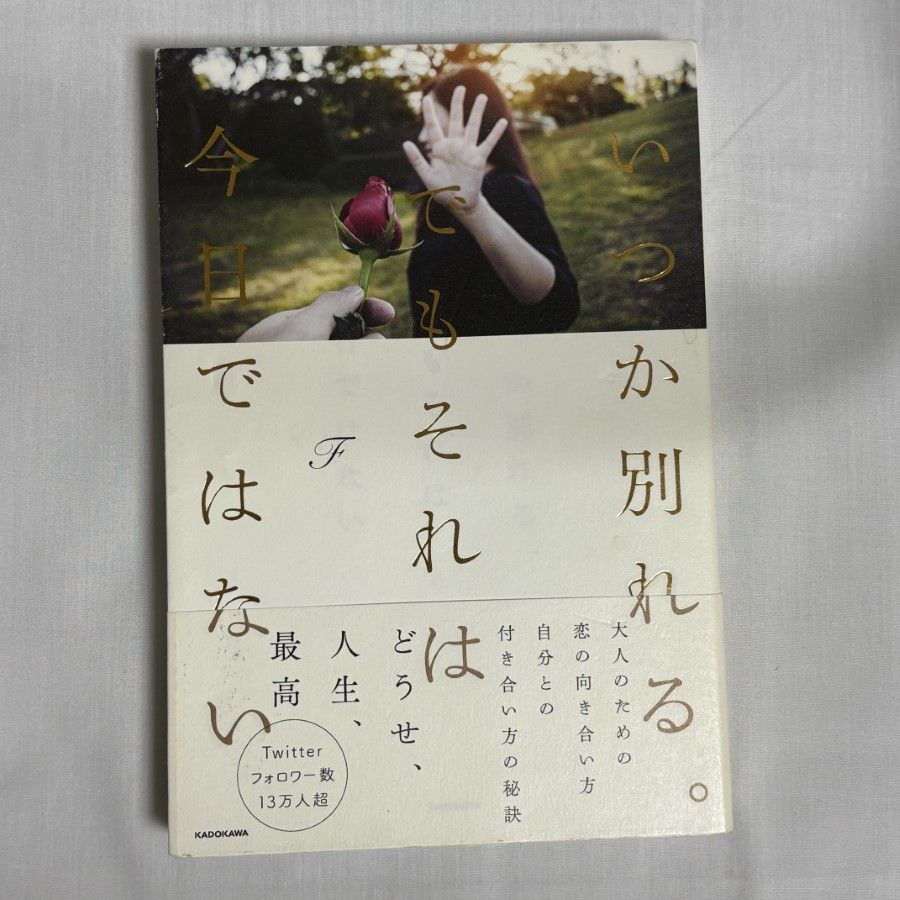 いつか別れる。
でもそれは
今日ではない
F
大人のための
恋の向き合い方
自分との
付き合い方の秘訣
どうせ、
人生、
最高
Twitter
フォロワー数
13万人超
KADOKAWA